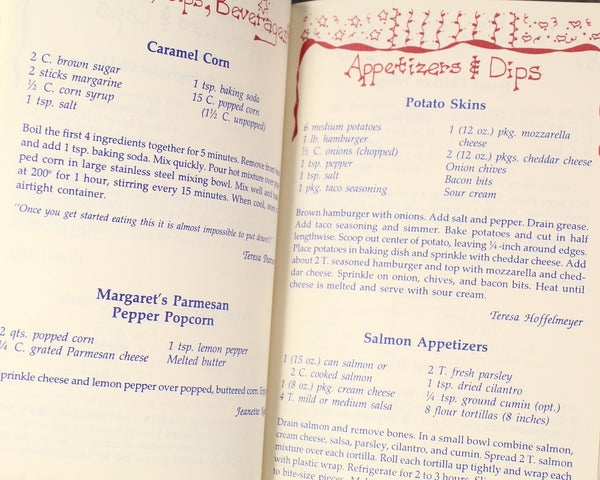 Dips, Beverages
Caramel Corn
2 C. brown sugar
2 sticks margarine
½ C. corn syrup
1 tsp. salt
1 tsp. baking soda
15 C. popped corn
(1½ C. unpopped)
Boil the first 4 ingredients together for 5 minutes. Remove from heat
and add 1 tsp. baking soda. Mix quickly. Pour hot mixture over
ped corn in large stainless steel mixing bowl. Mix well and
at 200° for 1 hour, stirring every 15 minutes. When cool, store
airtight container.
"Once you get started eating this it is almost impossible to put down!!!"
Teresa
Margaret's Parmesan
Pepper Popcorn
2 qts. popped corn
¼ C. grated Parmesan cheese
1 tsp. lemon pepper
Melted butter
Sprinkle cheese and lemon pepper over popped, buttered corn.
Jeanette
Appetizers & Dips
Potato Skins
6 medium potatoes
1 lb. hamburger
½ C. onions (chopped)
1 tsp. pepper
1 tsp. salt
1 pkg. taco seasoning
1 (12 oz.) pkg. mozzarella
cheese
2 (12 oz.) pkgs. cheddar cheese
Onion chives
Bacon bits
Sour cream
Brown hamburger with onions. Add salt and pepper. Drain grease.
Add taco seasoning and simmer. Bake potatoes and cut in half
lengthwise. Scoop out center of potato, leaving ¼-inch around edges.
Place potatoes in baking dish and sprinkle with cheddar cheese. Add
about 2 T. seasoned hamburger and top with mozzarella and ched-
dar cheese. Sprinkle on onion, chives, and bacon bits. Heat until
cheese is melted and serve with sour cream.
Teresa Hoffelmeyer
Salmon Appetizers
1 (15 oz.) can salmon or
2 C. cooked salmon
1 (8 oz.) pkg. cream cheese
4 T. mild or medium salsa
2 T. fresh parsley
1 tsp. dried cilantro
¼ tsp. ground cumin (opt.)
8 flour tortillas (8 inches)
Drain salmon and remove bones. In a small bowl combine salmon,
cream cheese, salsa, parsley, cilantro, and cumin. Spread 2 T. salmon
mixture over each tortilla. Roll each tortilla up tightly and wrap each
with plastic wrap. Refrigerate for 2 to 3 hours.
to bite-size pieces.